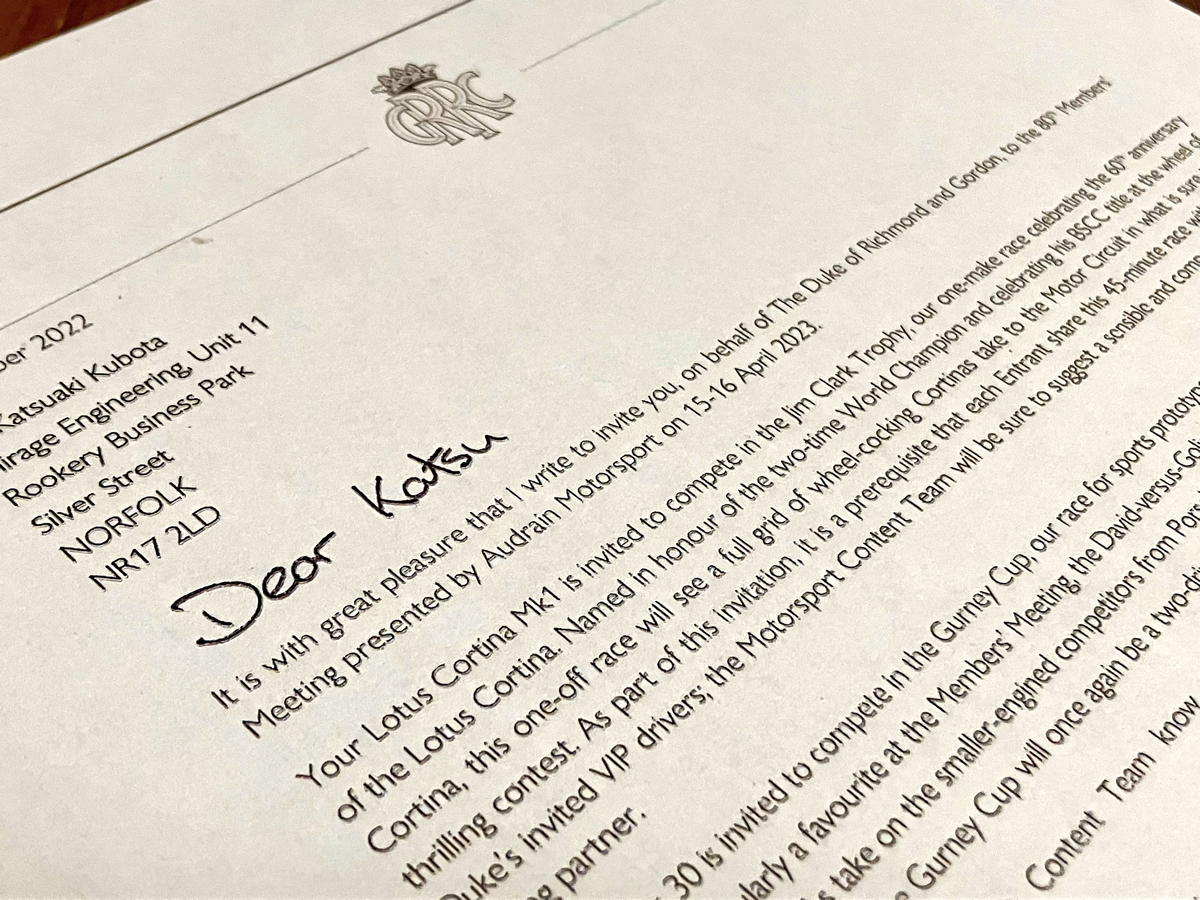 GRRC
2022
Katsuaki Kubota
Engineering, Unit 11
Rookery Business Park
Silver Street
NORFOLK
NR17 2LD
Dear Katsu
It is with great pleasure that I write to invite you, on behalf of The Duke of Richmond and Gordon, to the 80th Members'
Meeting presented by Audrain Motorsport on 15-16 April 2023.
Your Lotus Cortina Mk1 is invited to compete in the Jim Clark Trophy, our one-make race celebrating the 60th anniversary
of the Lotus Cortina. Named in honour of the two-time World Champion and celebrating his BSCC title at the wheel of
Cortina, this one-off race will see a full grid of wheel-cocking Cortinas take to the Motor Circuit in what is sure
thrilling contest. As part of this invitation, it is a prerequisite that each Entrant share this 45-minute race
Duke's invited VIP drivers; the Motorsport Content Team will be sure to suggest a sensible and
partner.
30 is invited to compete in the Gurney Cup, our race for sports
a favourite at the Members' Meeting, the David-versus-
take on the smaller-engined competitors from
Gurney Cup will once again be a
Content Team know